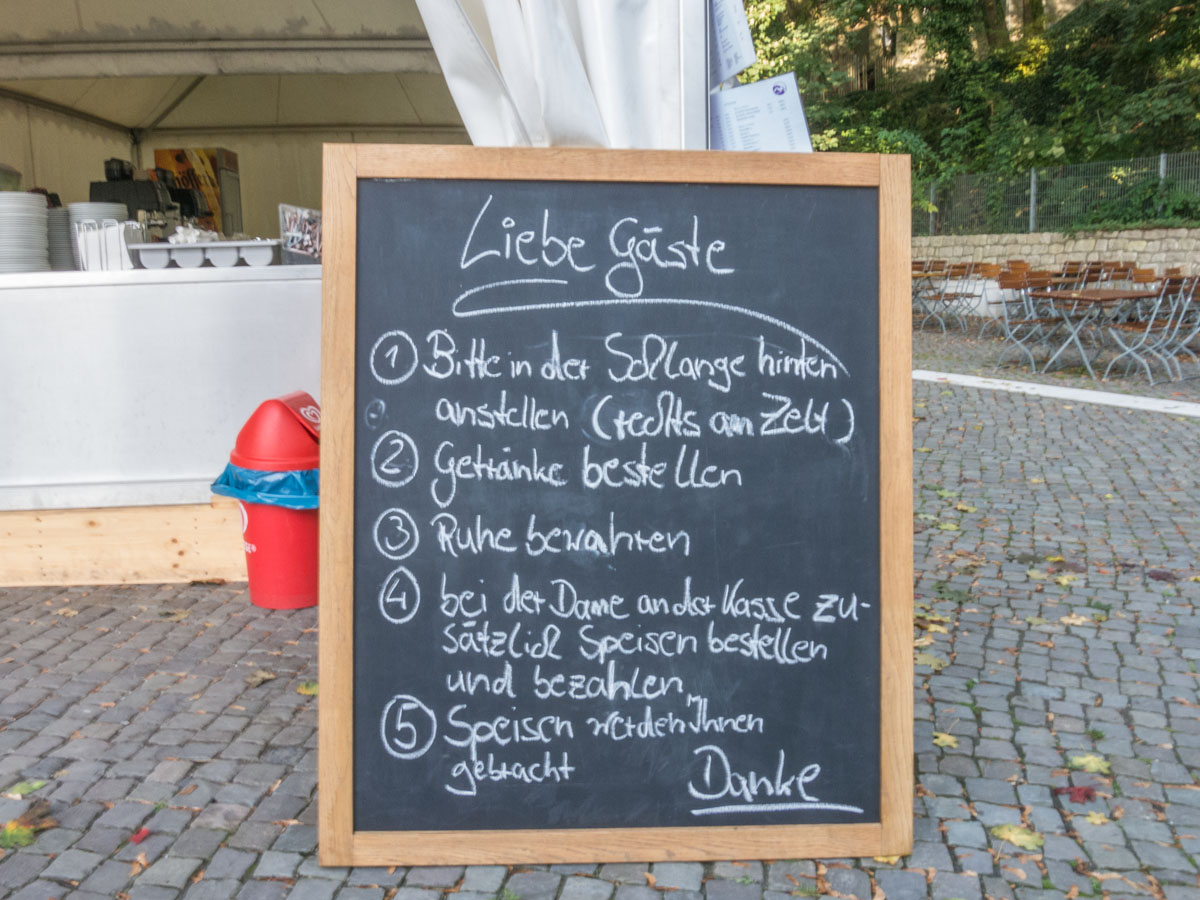 Liebe Gäste
1 Bitte in der Schlange hinten
anstellen (rechts am Zelt)
2 Getränke bestellen
3 Ruhe bewahren
4 bei der Dame an der Kasse zu-
sätzlich Speisen bestellen
und bezahlen
5 Speisen werden Ihnen
gebracht
Danke